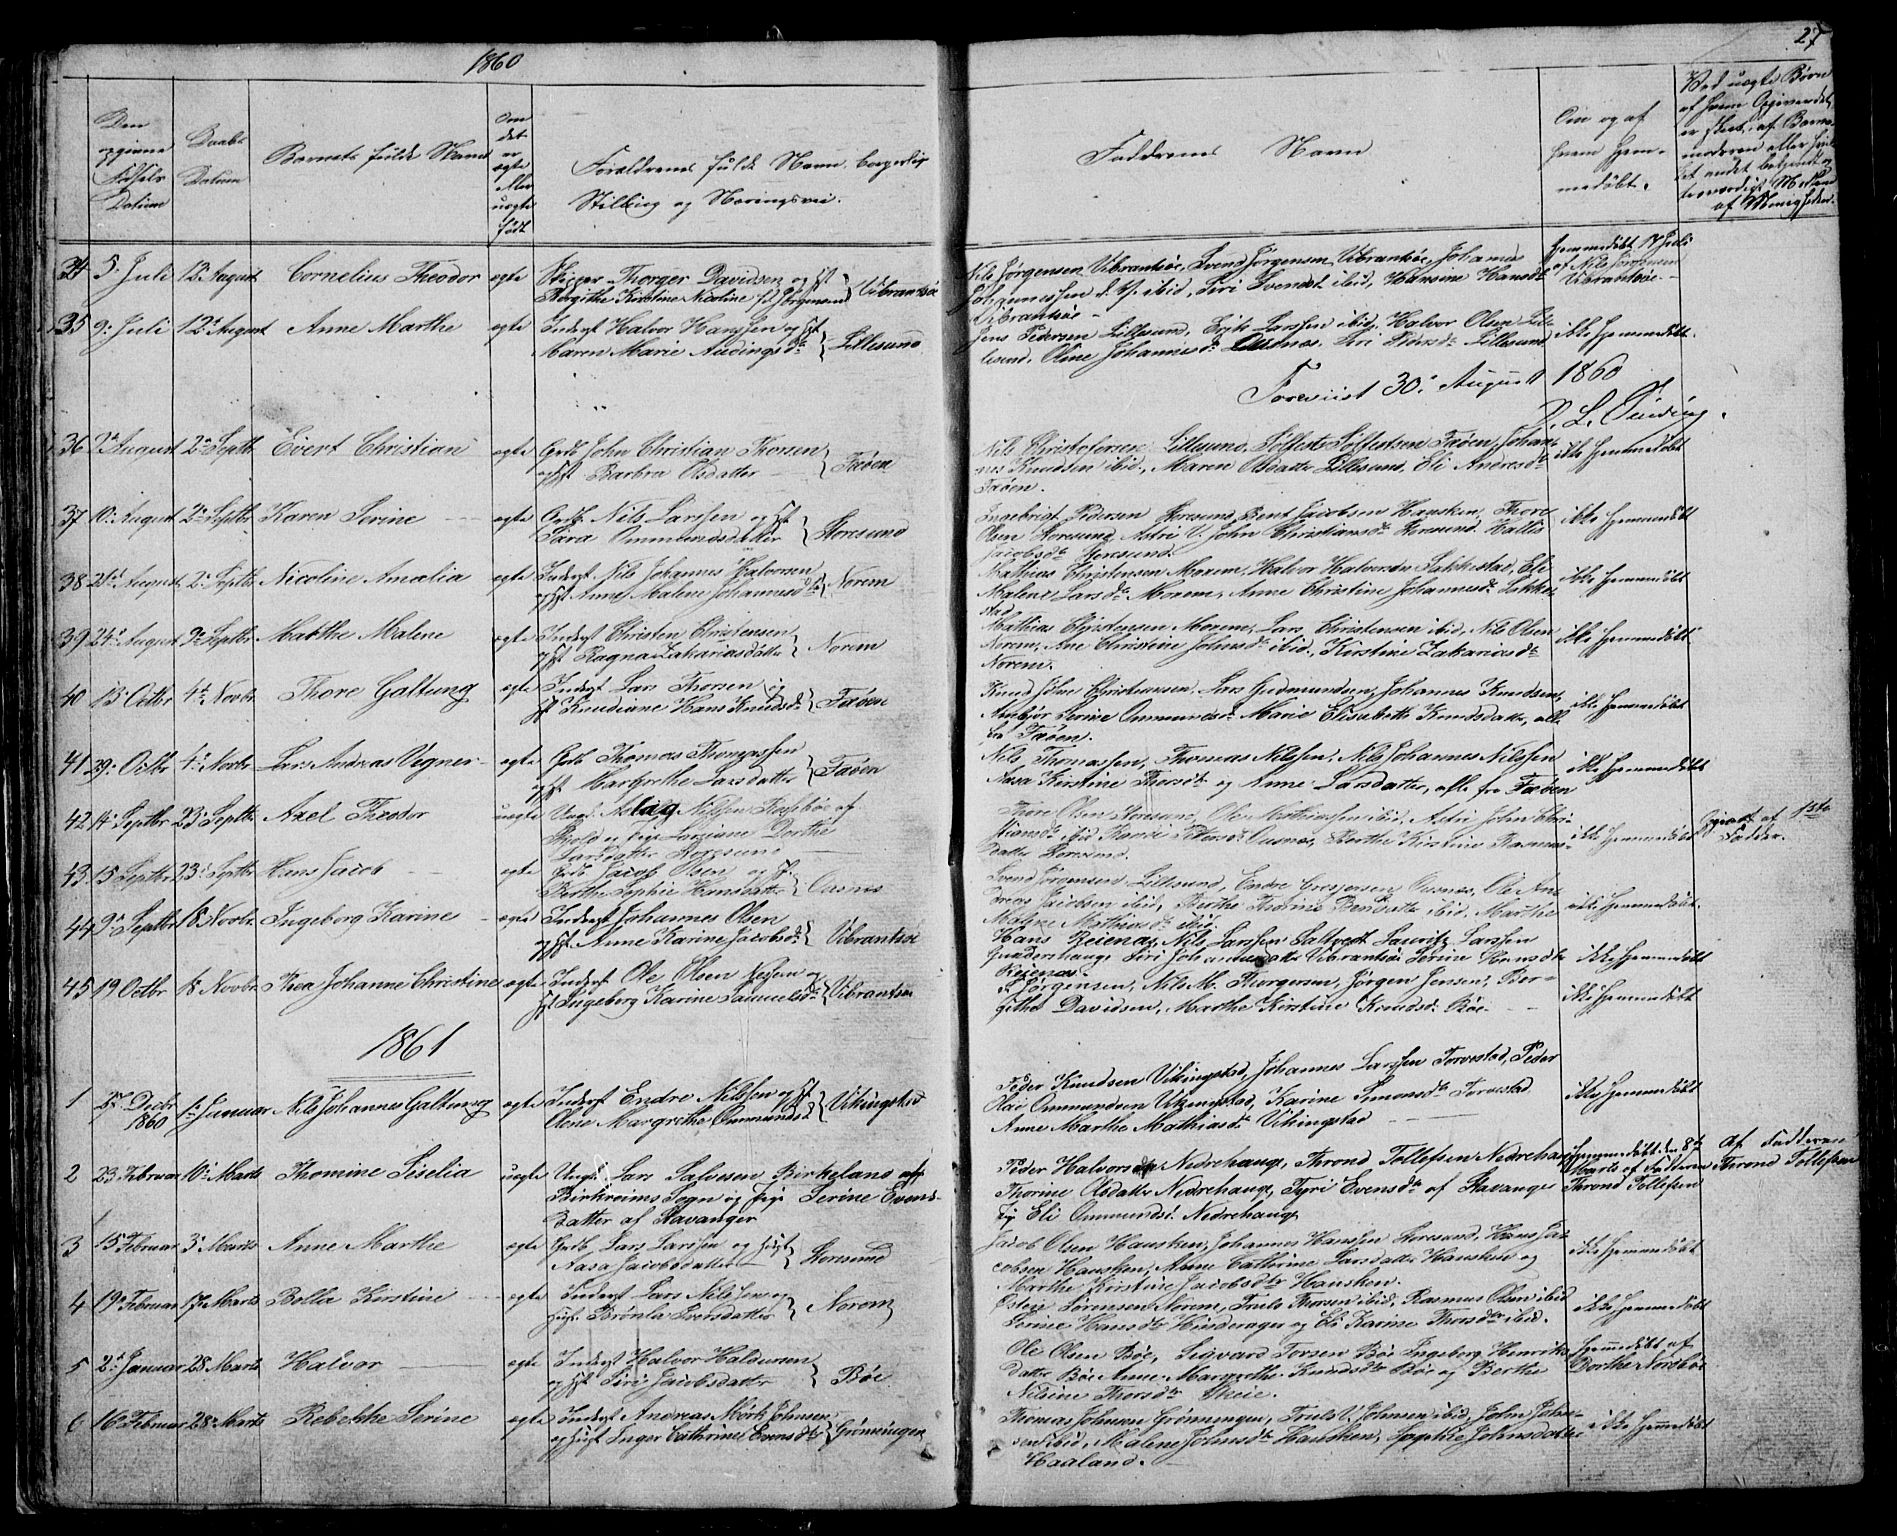 1860
27
Den opgivne Fødsels Datum
Daabs Datum
Barnets fulde Navn
Om det er ægte eller uægte født
Forældrenes fulde Navn borgerlig Stilling og Næringsvei.
Faddrenes Navn
Om og af hvem hjemmedøbt.
Ved uægte Børn af hvem Opgivendet er skeet, af Barnemoderen eller
34 5. Juli 12. August Cornelius Theodor ægte
Skipper Thorger Davidsen og Hst
Birgithe Kirstine Nicoline Jørgensd Vibrantsøe
Nils Jørgensen Vibrantsøe, Svend Jørgensen Vibrantsøe, Johannes
Johannessen ibid, Siri Svendsd ibid, Hansine Hansdt
Vibrantsøe
Hjemmedøbt 17 Juli
af Nils Jørgensen
Vibrantsøe
35 9. Juli 12. August Anne Marthe ægte
Inderst Halvor Hanssen og Hst
Maren Marie Audingsdt Lillesund
Jens Pedersen Lillesund, Erik Larssen ibid, Halvor Olsen Lillesund,
Oline Johannesdt Ousnæs, Siri Thorsdt Lillesund
ikke hjemmedøbt
Foreviist 30. August 1860
36 2. August 2. Septbr Evert Christian ægte
Grdb John Christian Thorsen
og Hst Barbra Olsdatter Fæøen
Nils Christofersen Lillesund, Fæøen, Johannes
Knudsen ibid, Maren Olsdatter Lillesund, Eli Andreasdt
Fæøen.
ikke hjemmedøbt
37 10. August 2. Septbr Karen Serine ægte
Grdb. Nils Larssen og Hst
Sara Ommundsdatter Storesund
Ingebrigt Pedersen Storesund, Bent Jacobsen Hausken, Thore
Olsen Storesund, Astri V. John Christiansdt Storesund, Hallis
Jacobsdt Storesund.
ikke hjemmedøbt
38 21. August 2. Septbr Nicoline Amalia ægte
Inderst Nils Johannes Halvorsen
og Hst Anne Malene Johannesdt Norem
Mathias Christensen Norem, Halvor Halvorsen Sakkestad, Eli
Malene Larsdt Norem, Anne Christine Johannesdt Sakkestad
ikke hjemmedøbt
39 24. August 9. Septbr Marthe Malene ægte
Inderst Christen Christensen
og Hst Ragna Zakariasdatter Norem
Mathias Christensen Norem, Lars Christensen ibid, Nils Olsen
Norem, Ane Christine Johnsdt ibid, Kirstine Zakariasdt
Norem.
ikke hjemmedøbt
40 13 Octbr 4. Novbr Thore Galtung ægte
Inderst Lars Thorsen og
Hst Knudiane Hans Knudsdt Fæøen
Knud John Christiansen, Lars Gudmundsen, Johannes Knudsen,
Serine Ommundsdt Marie Elisabeth Knudsdatter, alle
fra Fæøen.
ikke hjemmedøbt
41 29. Octbr 4. Novbr Lars Andreas Vegner ægte
Grdb Thomas Thomassen
og Hst Margrethe Larsdatter Fæøen
Nils Thomassen, Thomas Nilssen, Nils Johannes Nilssen
Aasa Kirstine Thorsdt og Anne Larsdatter, alle fra Fæøen
ikke hjemmedøbt
42 14 Septbr 23. Septbr Axel Theodor uægte
Ungk. Aslag Nilssen af
Skjold og Pige Loviane Dorthe
Larsdatter Storesund
Thore Olsen Storesund, Ole Mathiassen ibid, Astri John Christiansdt
ibid, Ousnæs, Berthe Kirstine Rasmusdatter
Storesund.
ikke hjemmedøbt
Opgivet af 1ste Fadder.
43. 15 Septbr 23. Septbr Hans Jacob ægte
Grdb Jacob Olsen og Hst
Berthe Sophie Hansdatter Ousnes
Svend Jørgensen Lillesund, Endre Ousnæs, Ole Andreas
Jacobsen ibid, Berthe Thorine Bendsdatter ibid, Marthe
Malene Mathiasdt ibid.
ikke hjemmedøbt
44 9. Septbr 18 Novbr. Ingeborg Karine ægte
Inderst Johannes Olsen
og Hst Anne Karine Jacobsdt Vibrantsøe
Hans Reienæs, Nils Larssen Saltvedt, Lauritz Larssen
Gundershaug, Siri Vibrantsøe, Serine
Reienæs.
ikke hjemmedøbt
45 19 Octbr 18 Novbr. Thea Johanne Christine ægte
Inderst Ole Olsen og
Hst Ingeborg Karine Samuelsdt Vibrantsøe
Jørgensen, Nils M. Thorgersen, Jørgen Jensen, Bergithe
Davidsen, Marthe Kirstine Knudsd. Bøe
ikke hjemmedøbt
1861
1 27. Decbr 1860 1. Januar Nils Johannes Galtung ægte
Inderst Endre Nilssen og Hst
Olene Margrethe Ommundsdt Vikingstad
Peder Knudsen Vikingstad, Johannes Larssen Torvestad, Peder
Olai Ommundsen Vikingstad, Karine Simonsdt Torvestad
Anne Marthe Mathiasdt Vikingstad
ikke hjemmedøbt
2 23 Februar 10. Marts Thomine Siselia uægte
Ungk. Lars Salvesen Birkeland af
Birkreims Sogn og Pige Serine Evensdatter
af Stavanger
Peder Halvorsen Nedrehaug, Thrond Tollefsen Nedrehaug
Thorine Olsdatter Nedrehaug, Tyri Evensdt af Stavanger
Eli Ommundsd. Nedrehaug
Hjemmedøbt den 8de
Marts af Fadderen
Thrond Tollefsen
Af Fadderen
Thrond Tollefsen
3 15 Februar 3. Marts Anne Marthe ægte
Grdb. Lars Larssen og Hust
Aasa Jacobsdatter Storesund
Jacob Olsen Hausken, Johannes Hanssen Storesund, Hans Jacobsen
Hausken, Anne Cathrine Larsdatter Hausken og
Marthe Kirstine Jacobsdtr Hausken.
ikke hjemmedøbt
4 19. Februar 17. Marts Bolla Kirstine ægte
Inderst Lars Nilssen og
Hust. Brønla Iversdatter Norem
Østen Sørensen Norem, Truls Thorsen ibid, Rasmus Olsen ibid
Serine Hansdtr Hinderager og Eli Karine Thorsdtr ibid.
ikke hjemmedøbt
5 2. Januar 28 Marts Halvor ægte
Inderst Halvor Haldorsen
og Hst Siri Jacobsdatter Bøe
Ole Olsen Bøe, Sivard Torsen Bø Ingeborg Henriksdatter
Bøe Anne Margrethe Knudsdtr Bøe og Berthe
Nilsine Thorsdtr Skeie.
hjemmedøbt af
Dorthe Nordbøe
6 16. Februar 28. Marts Rebekke Serine ægte
Inderst Andreas Mørk Johnsen
og Hust Inger Cathrine Evensdtr Grønningen
Thomas Johnsen Grønningen, Truls V. Johnsen ibid, John Johnsen
ibid, Malene Johnsdtr Hausken, Johnsdatter
Haaland.
ikke hjemmedøbt